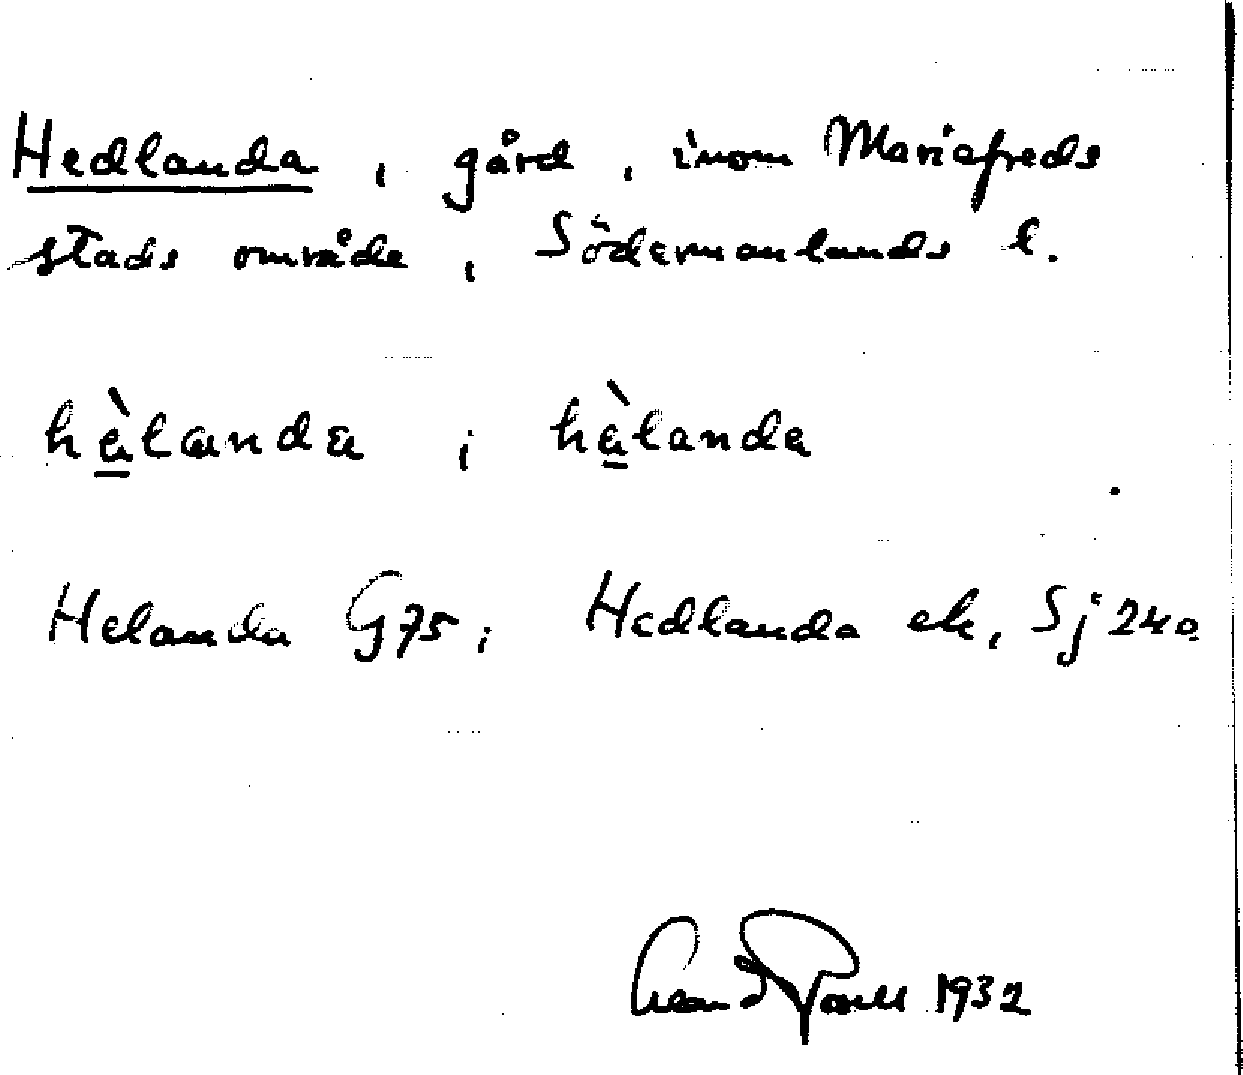 Hedlanda, gård, inom Mariefreds
stads område, Södermanlands l.
hèlanda; hèlanda
Helanda G75; Hedlanda ek, Sj 240
1932